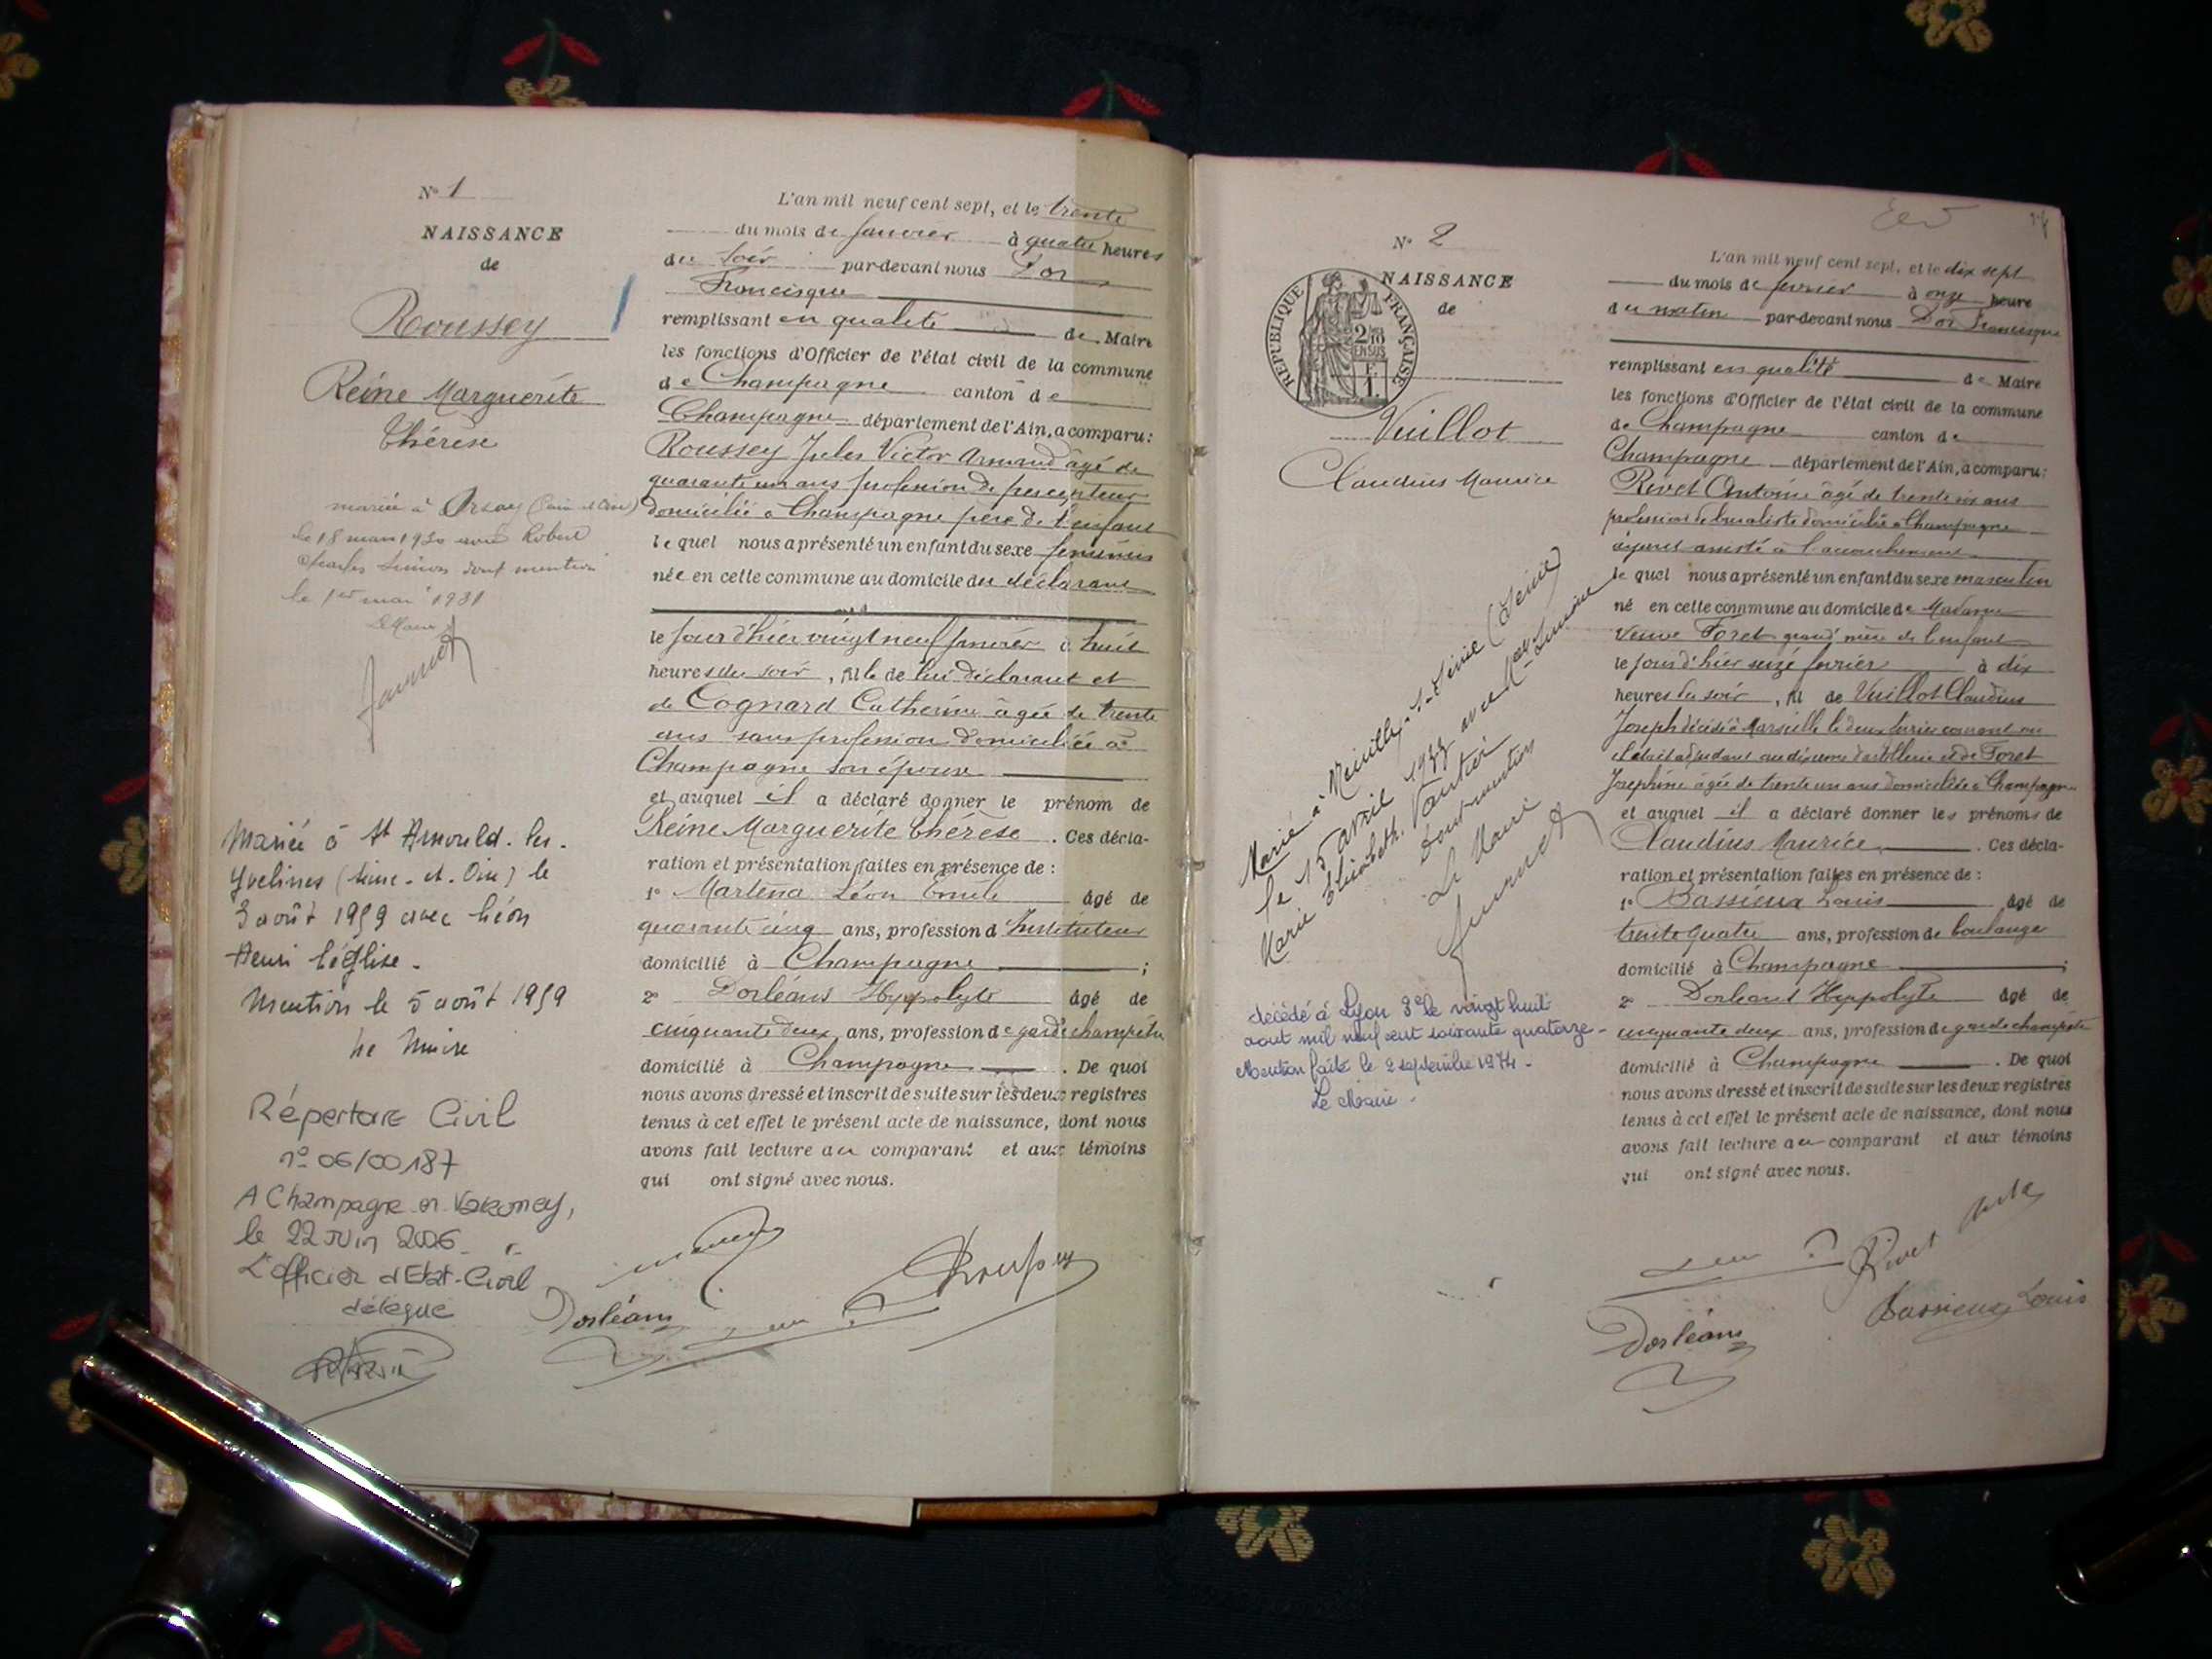 N° 1
NAISSANCE
de
Roussey
Reine Marguerite
Thérèse
mariée à Orsay (Seine et Oise)
le 18 mars 1930 avec Robert
Charles Simon dont mention
le 1er mai 1931
Le Maire
Mariée à St Arnould-les-
Yvelines (Seine-et-Oise) le
3 août 1959 avec Léon
Henri Léglise.
Mention le 5 août 1959
Le Maire
Répertoire Civil
n° 06/00187
A Champagne en Valromey,
le 22 Juin 2006.
L'officier d'Etat-Civil
délégué
L'an mil neuf cent sept, et le trente
du mois de janvier à quatre heures
du soir par-devant nous Dor
Francisque
remplissant en qualité de Maire
les fonctions d'Officier de l'état civil de la commune
de Champagne canton de
Champagne département de l'Ain, a comparu:
Roussey Jules Victor Armand âgé de
quarante un ans profession de percepteur
domicilié à Champagne père de l'enfant
lequel nous a présenté un enfant du sexe féminin
née en cette commune au domicile du déclarant
le jour d'hier vingt neuf janvier à huit
heures du soir, fille de lui déclarant et
de Cognard Catherine âgée de trente
ans sans profession domiciliée à
Champagne son épouse
et auquel il a déclaré donner le prénom de
Reine Marguerite Thérèse. Ces décla-
ration et présentation faites en présence de:
1° Martena Léon Emile âgé de
quarante cinq ans, profession d'Instituteur
domicilié à Champagne ;
2° Dorléans Hyppolyte âgé de
cinquante deux ans, profession de garde champêtre
domicilié à Champagne. De quoi
nous avons dressé et inscrit de suite sur les deux registres
tenus à cet effet le présent acte de naissance, dont nous
avons fait lecture au comparant et aux témoins
qui ont signé avec nous.
Dorléans
Roussey
N° 2
NAISSANCE
de
RÉPUBLIQUE FRANÇAISE
2/10
EN SUS
F.
1.
Vuillot
Claudius Maurice
Marié à Neuilly s-Seine (Seine)
le 15 avril 1933 avec
Marie Elisabeth
Dont mention
Le Maire
décédé à Lyon 3e le vingt huit
août mil neuf cent soixante quatorze-
Mention faite le 2 septembre 1974.
Le Maire.
L'an mil neuf cent sept, et le dix sept
du mois de février à onze heure
du matin par-devant nous Dor Francisque
remplissant en qualité de Maire
les fonctions d'Officier de l'état civil de la commune
de Champagne canton de
Champagne département de l'Ain, a comparu:
Rivet Antoine âgé de trente six ans
profession de buraliste domicilié à Champagne
ayant assisté à l'accouchement
lequel nous a présenté un enfant du sexe masculin
né en cette commune au domicile de Madame
Veuve Foret grand'mère de l'enfant
le jour d'hier seize février à dix
heures du soir, fil de Vuillot Claudius
Joseph décédé à Marseille le deux courant
et de Foret
Joséphine âgée de trente un ans domiciliée à Champagne
et auquel il a déclaré donner les prénoms de
Claudius Maurice. Ces décla-
ration et présentation faites en présence de:
1° Bassieux Louis âgé de
trente quatre ans, profession de boulanger
domicilié à Champagne ;
2° Dorléans Hyppolyte âgé de
cinquante deux ans, profession de garde champêtre
domicilié à Champagne. De quoi
nous avons dressé et inscrit de suite sur les deux registres
tenus à cet effet le présent acte de naissance, dont nous
avons fait lecture au comparant et aux témoins
qui ont signé avec nous.
Rivet
Dorléans
Bassieux Louis